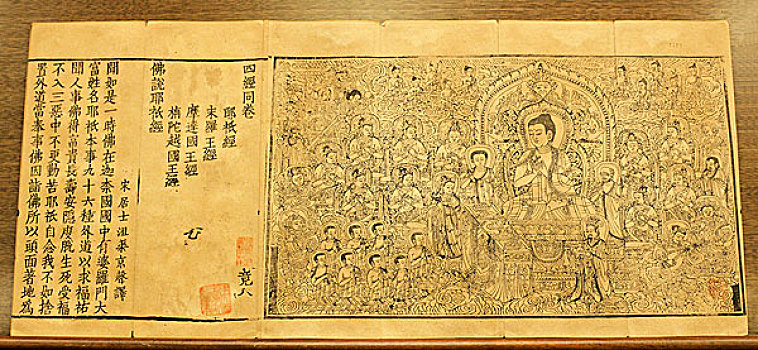 四經同卷
耶祇經
末羅王經
摩達國王經
旃陀越國王經
佛說耶祇經
宋居士沮渠京聲譯
聞如是一時佛在迦柰國國中有婆羅門大
富姓名耶祇本事九十六種外道以求福祐
聞人事佛得富貴長壽安隱度脫生死受福
不入三惡中不更勤苦耶祇自念我不如捨
置外道當奉事佛因詣佛所以頭面著地爲